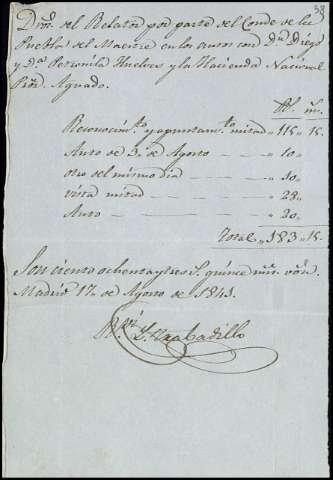 38
Dros. del Relator por parte del Conde de la
Puebla del Maestre en los autos con Dn. Diego
y Da. Petronila Huelves y la Hacienda Nacional
Pror. Aguado.
Rs. ms.
Reconocimto. y apuntam.to mitad " 115 " 15.
Auto de 3, de Agosto " 10 "
otro del mismo dia " 10 "
vista mitad " 28 "
Auto " 20 "
Total " 183 " 15.
Son ciento ochenta y tres rs. quince ms. von.
Madrid 17 de Agosto de 1841.